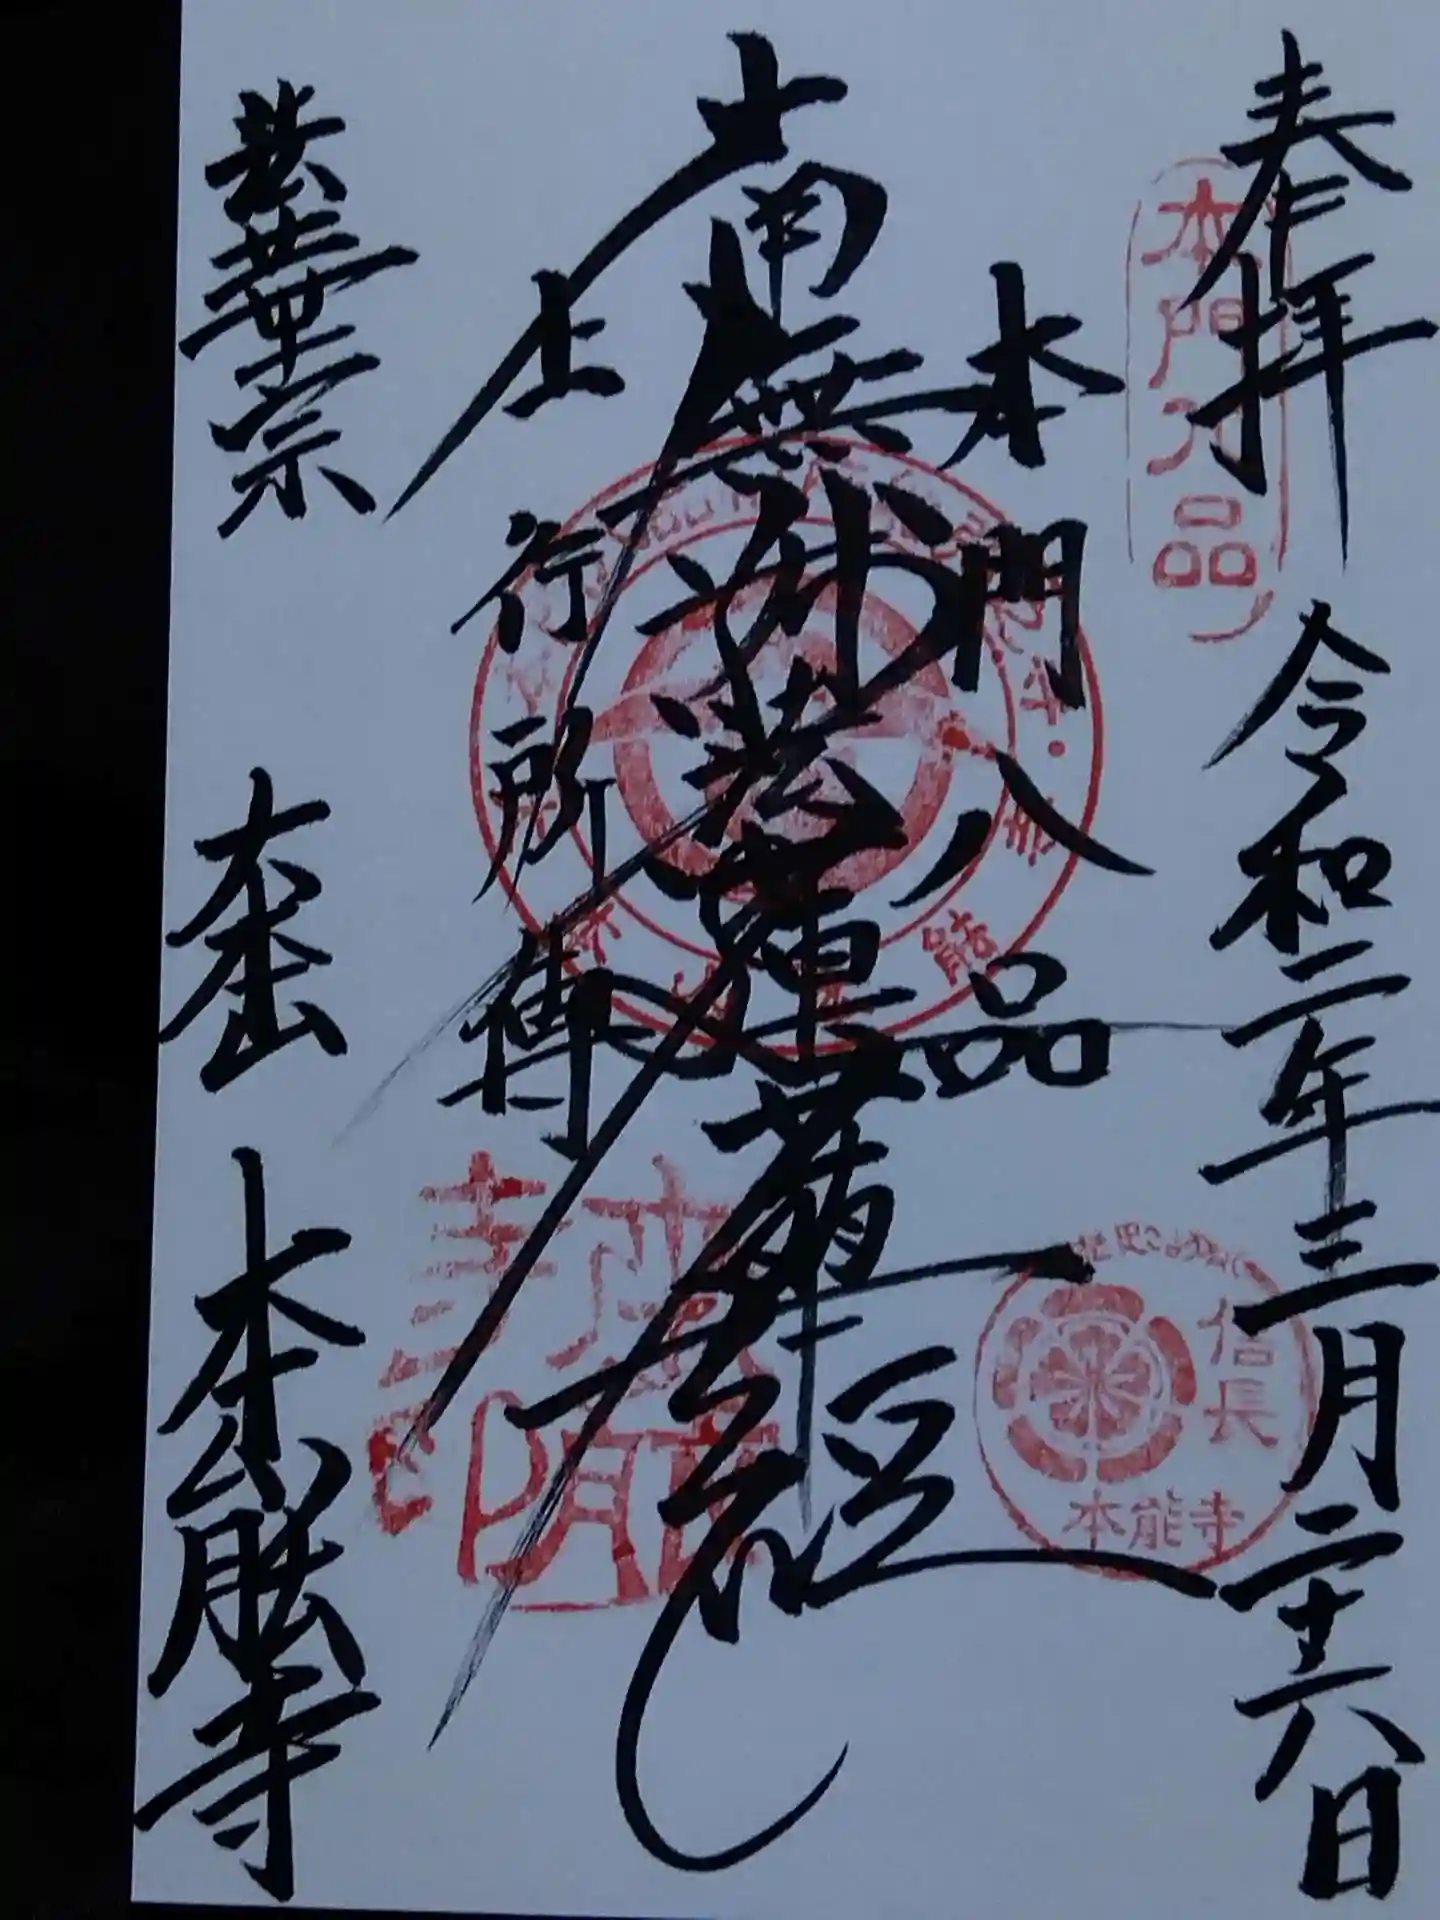 奉拝 令和二年三月二十六日
本門八品
南無妙法蓮華経
上行所傳
法華宗 大本山 本能寺
本門八品
信長
本能寺